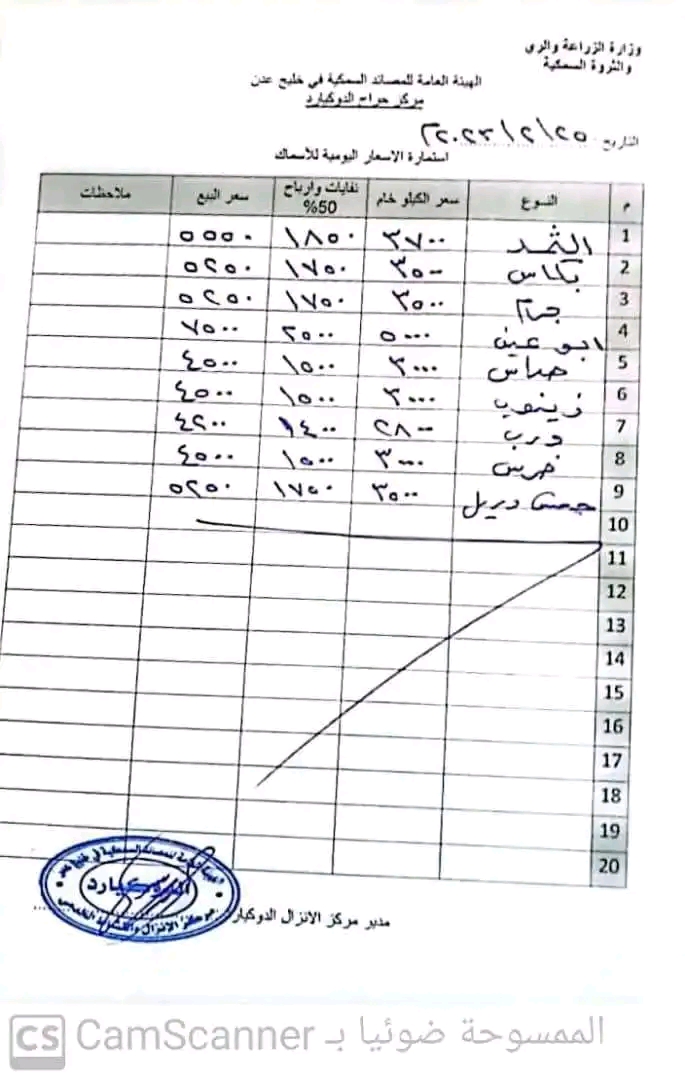 وزارة الزراعة والري
والثروة السمكية
الهيئة العامة للمصائد السمكية في خليج عدن
مركز حراج الدوكيارد
التاريخ ٢٠٢٣/٢/٢٥
استمارة الاسعار اليومية للأسماك
م النوع سعر الكيلو خام نفايات وارباح 50% سعر البيع ملاحظات
1 الثمد ٣٧٠٠ ١٨٥٠ ٥٥٥٠
2 بكاس ٣٥٠٠ ١٧٥٠ ٥٢٥٠
3 جرام ٣٥٠٠ ١٧٥٠ ٥٢٥٠
4 ابو عين ٥٠٠٠ ٢٥٠٠ ٧٥٠٠
5 ٣٠٠٠ ١٥٠٠ ٤٥٠٠
6 زينوب ٣٠٠٠ ١٥٠٠ ٤٥٠٠
7 درب ٢٨٠٠ ١٤٠٠ ٤٢٠٠
8 ٣٠٠٠ ١٥٠٠ ٤٥٠٠
9 ٣٥٠٠ ١٧٥٠ ٥٢٥٠
10
11
12
13
14
15
16
17
18
19
20
مدير مركز الانزال الدوكيارد
CS CamScanner الممسوحة ضوئيا بـ